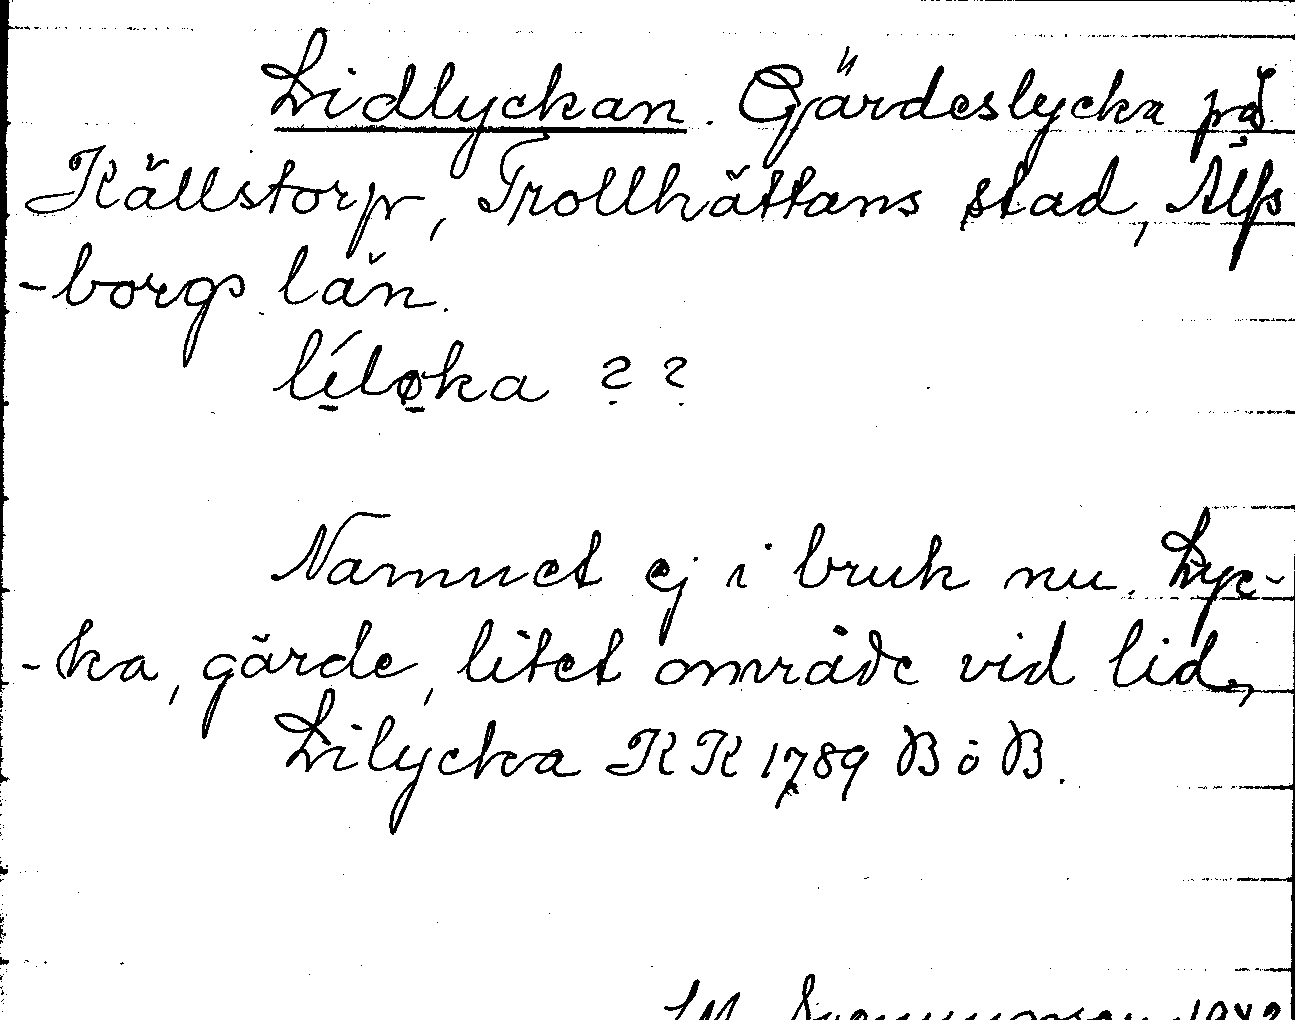 Lidlyckan. Gärdeslycka på
Källstorp, Trollhättans stad, Älfs
-borgs län.
líløka ? ?
Namnet ej i bruk nu. Lyc-
-ka, gärde, litet område vid lid,
Lilycka KK 1789 B ö B.